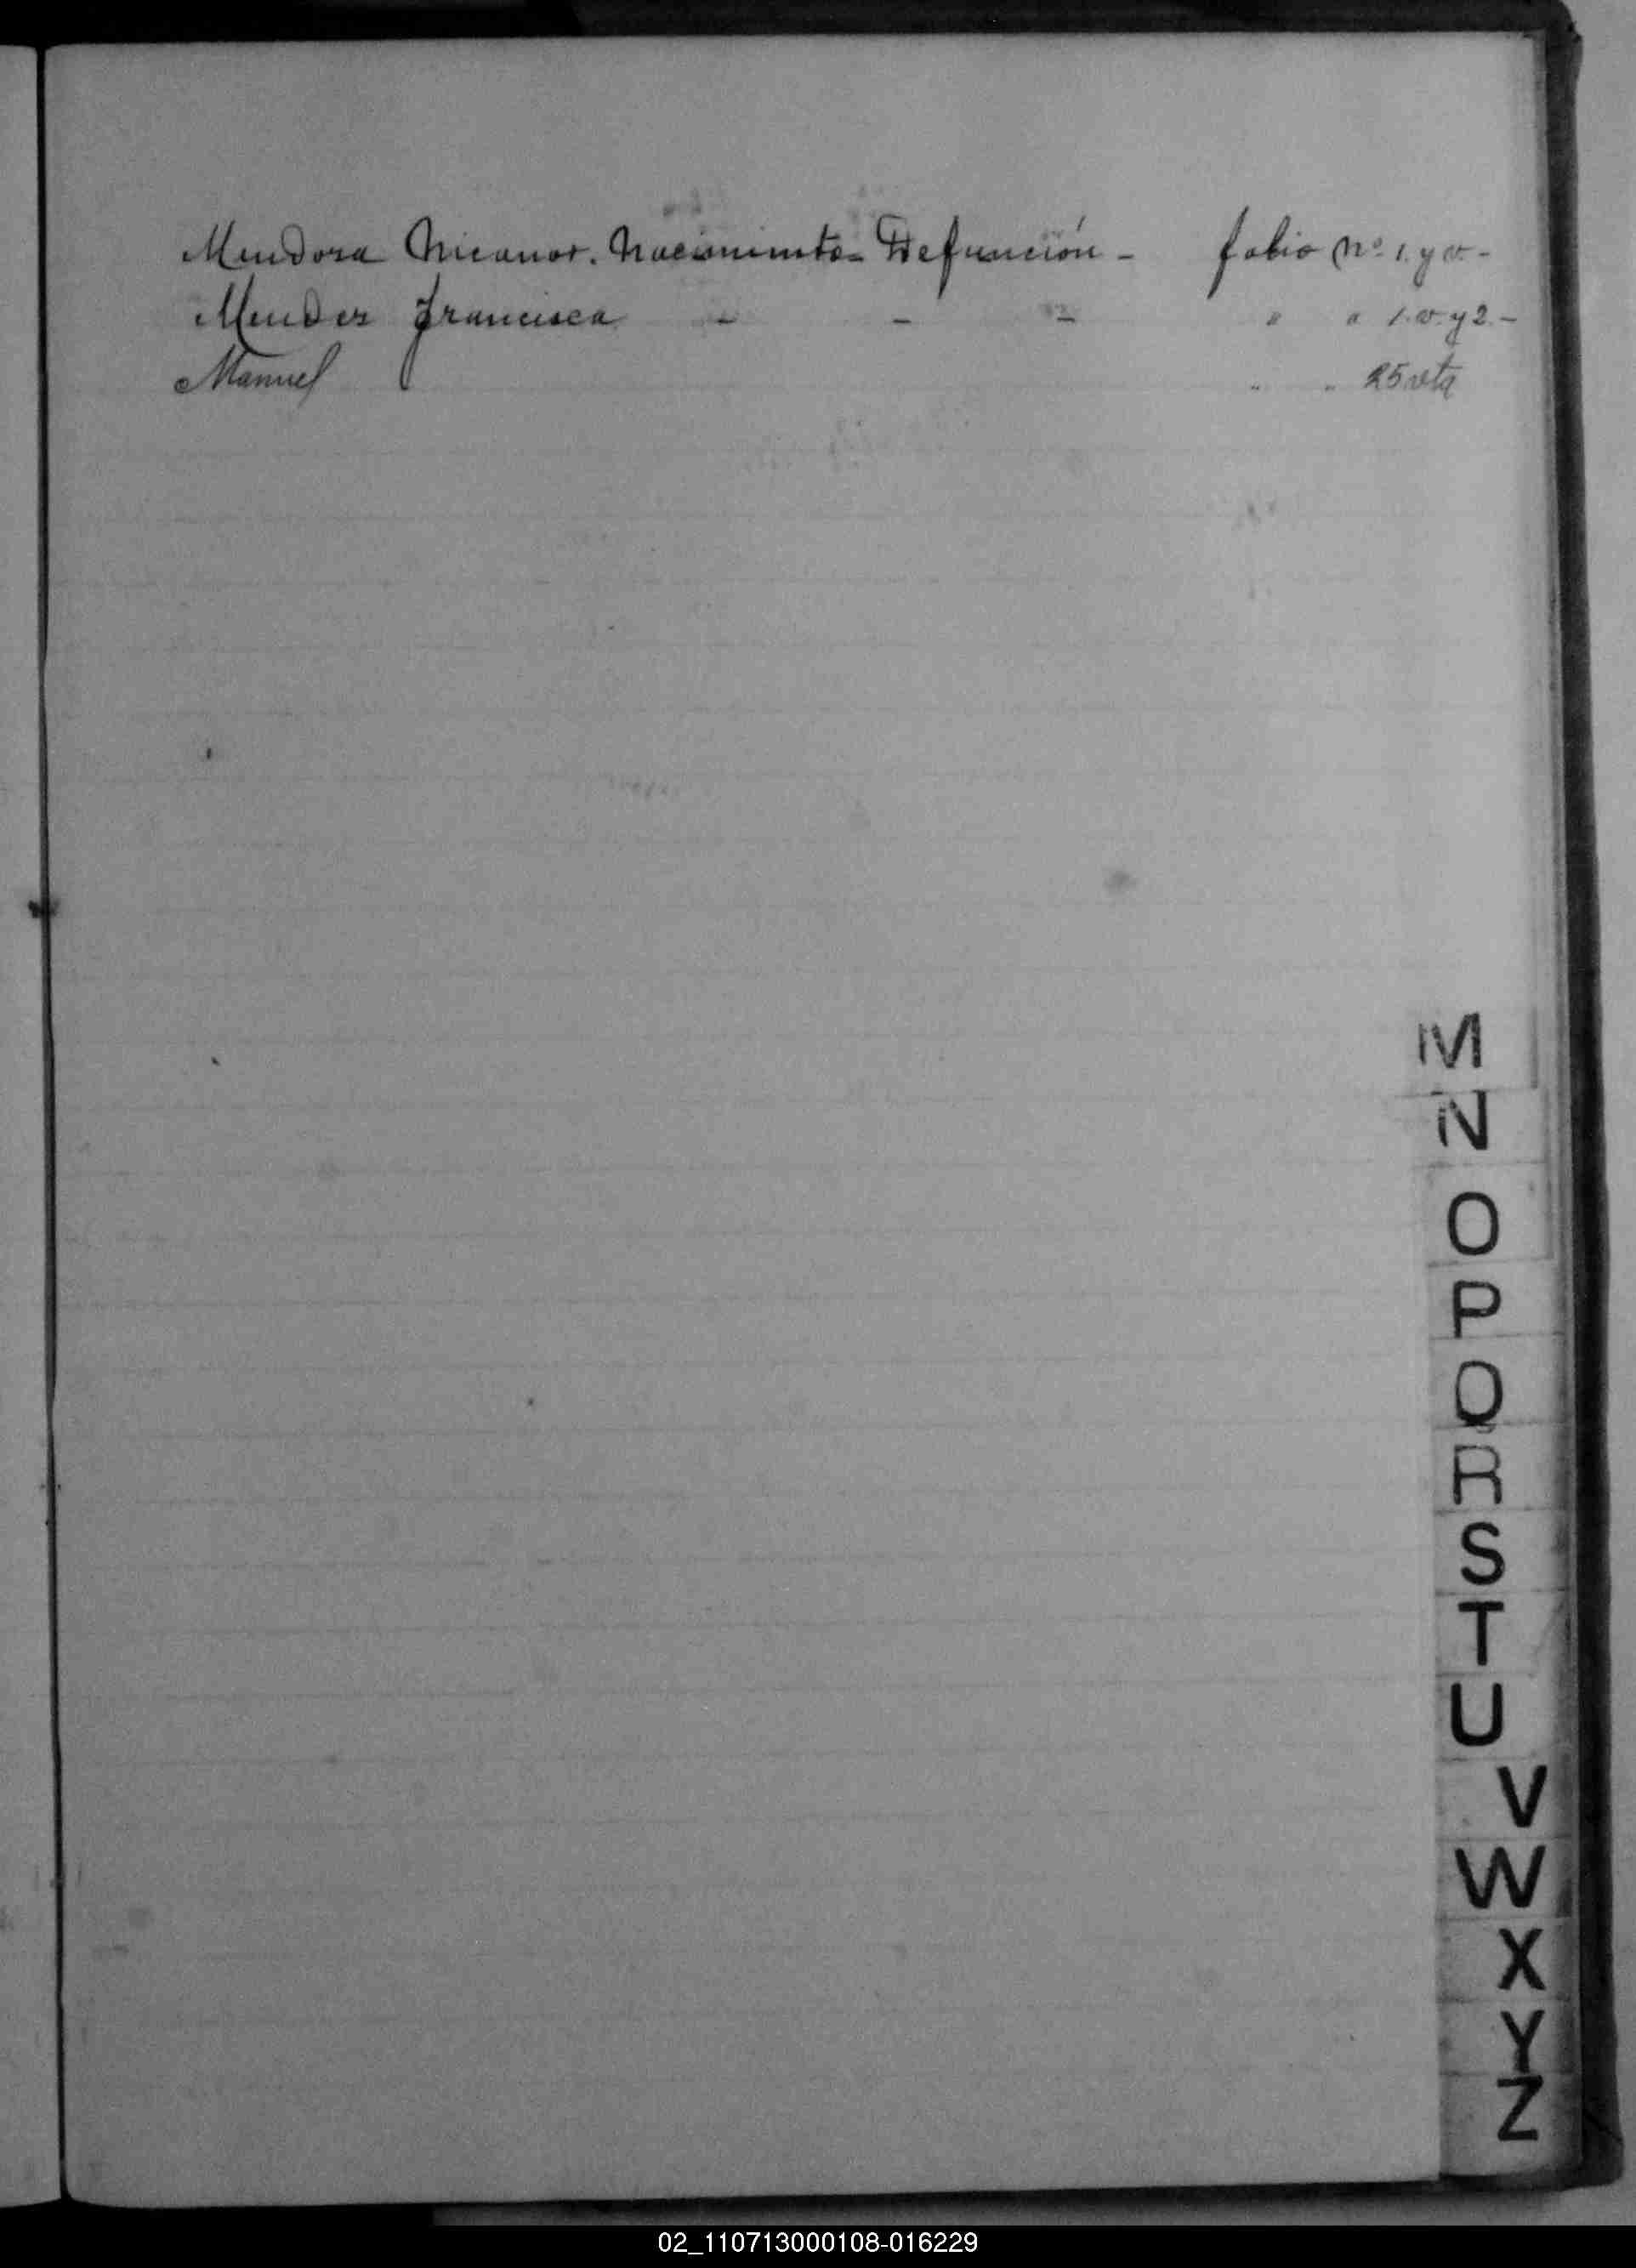 Mendoza Nicanor. Nacimiento = Defunción - folio Nº 1. y v. -
Mendez Francisca - - - " " 1. v. y 2. -
Manuel " " 25 vta
M
N
O
P
Q
R
S
T
U
V
W
X
Y
Z
02_110713000108-016229